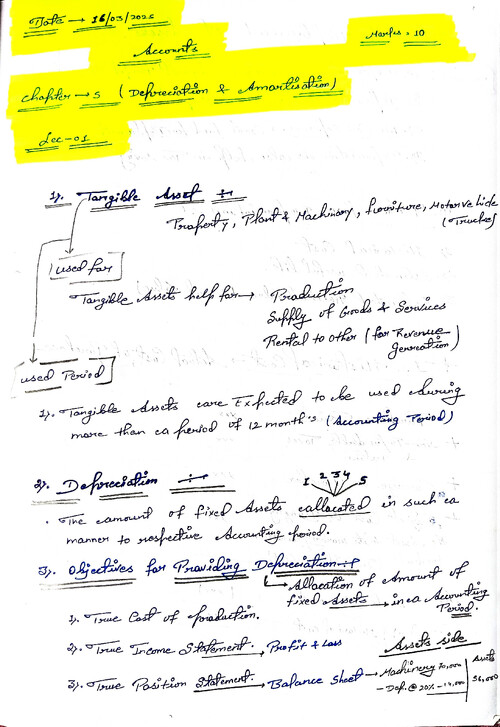 Date → 16/03/2025
Marks = 10
Accounts
Chapter → 5 (Depreciation & Amortisation)
Lec-01
1). Tangible Asset :-
Property, Plant & Machinery, furniture, Motor vehicle
(Trucks)
used for
Tangible Assets help for → Production
Supply of Goods & Services
Rental to other (for Revenue
generation)
used Period
1). Tangible Assets are Expected to be used during
more than a period of 12 month's (Accounting Period)
2). Depreciation :-
1 2 3 4 5
. The amount of fixed Assets allocated in such a
manner to respective Accounting period.
3). Objectives for Providing Depreciation :-
→ Allocation of Amount of
fixed Assets → in a Accounting
Period.
1). True Cost of production.
2). True Income Statement → Profit & Loss
Assets side
3). True Position Statement → Balance Sheet → Machinery 70,000
- Dep. @ 20% - 14,000
Assets
56,000